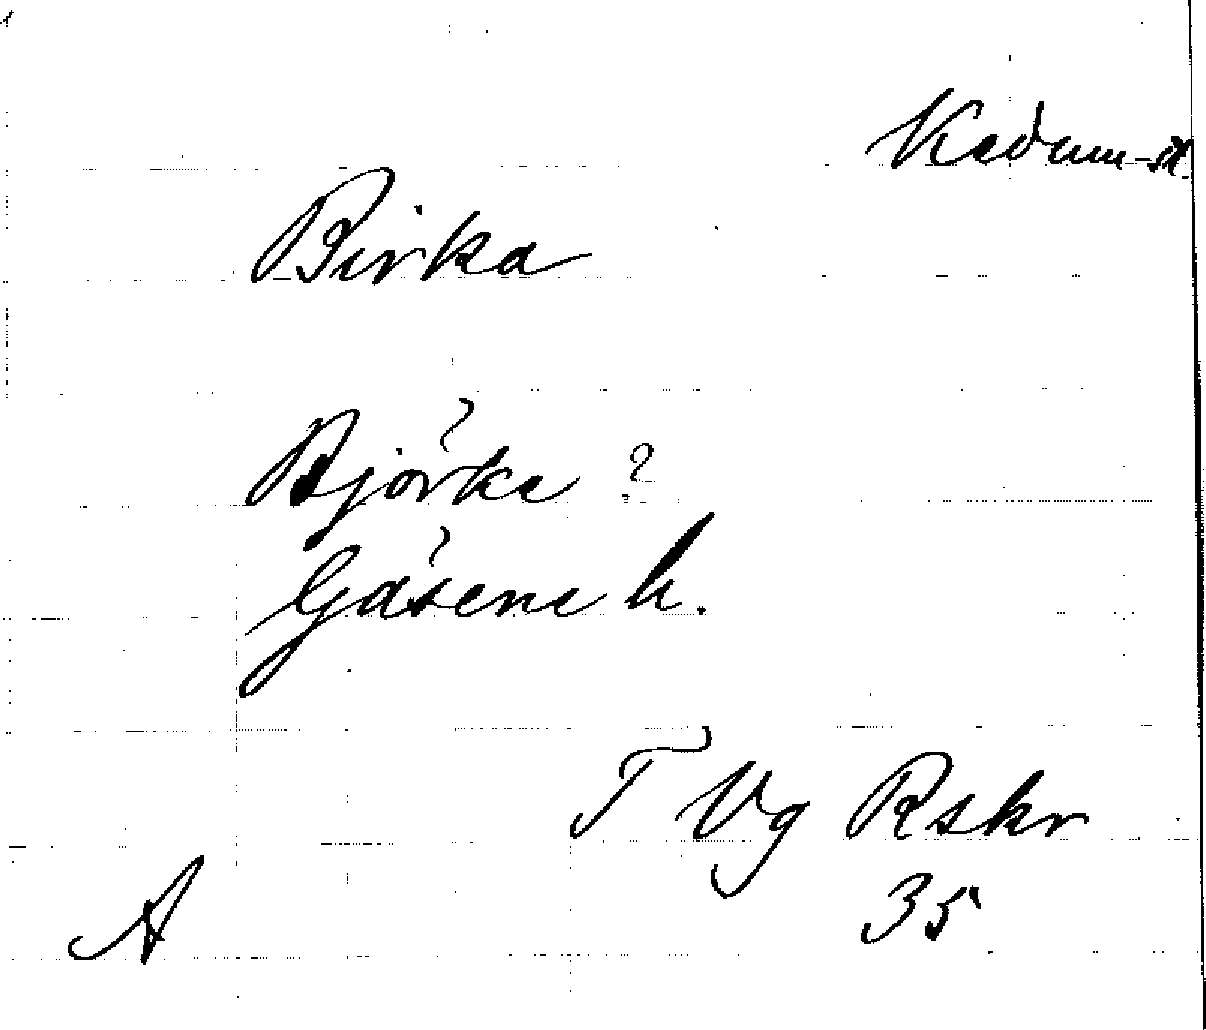 Kedum
Birka
Björke ?
Gäsene h.
T Vg Rskr
35
A